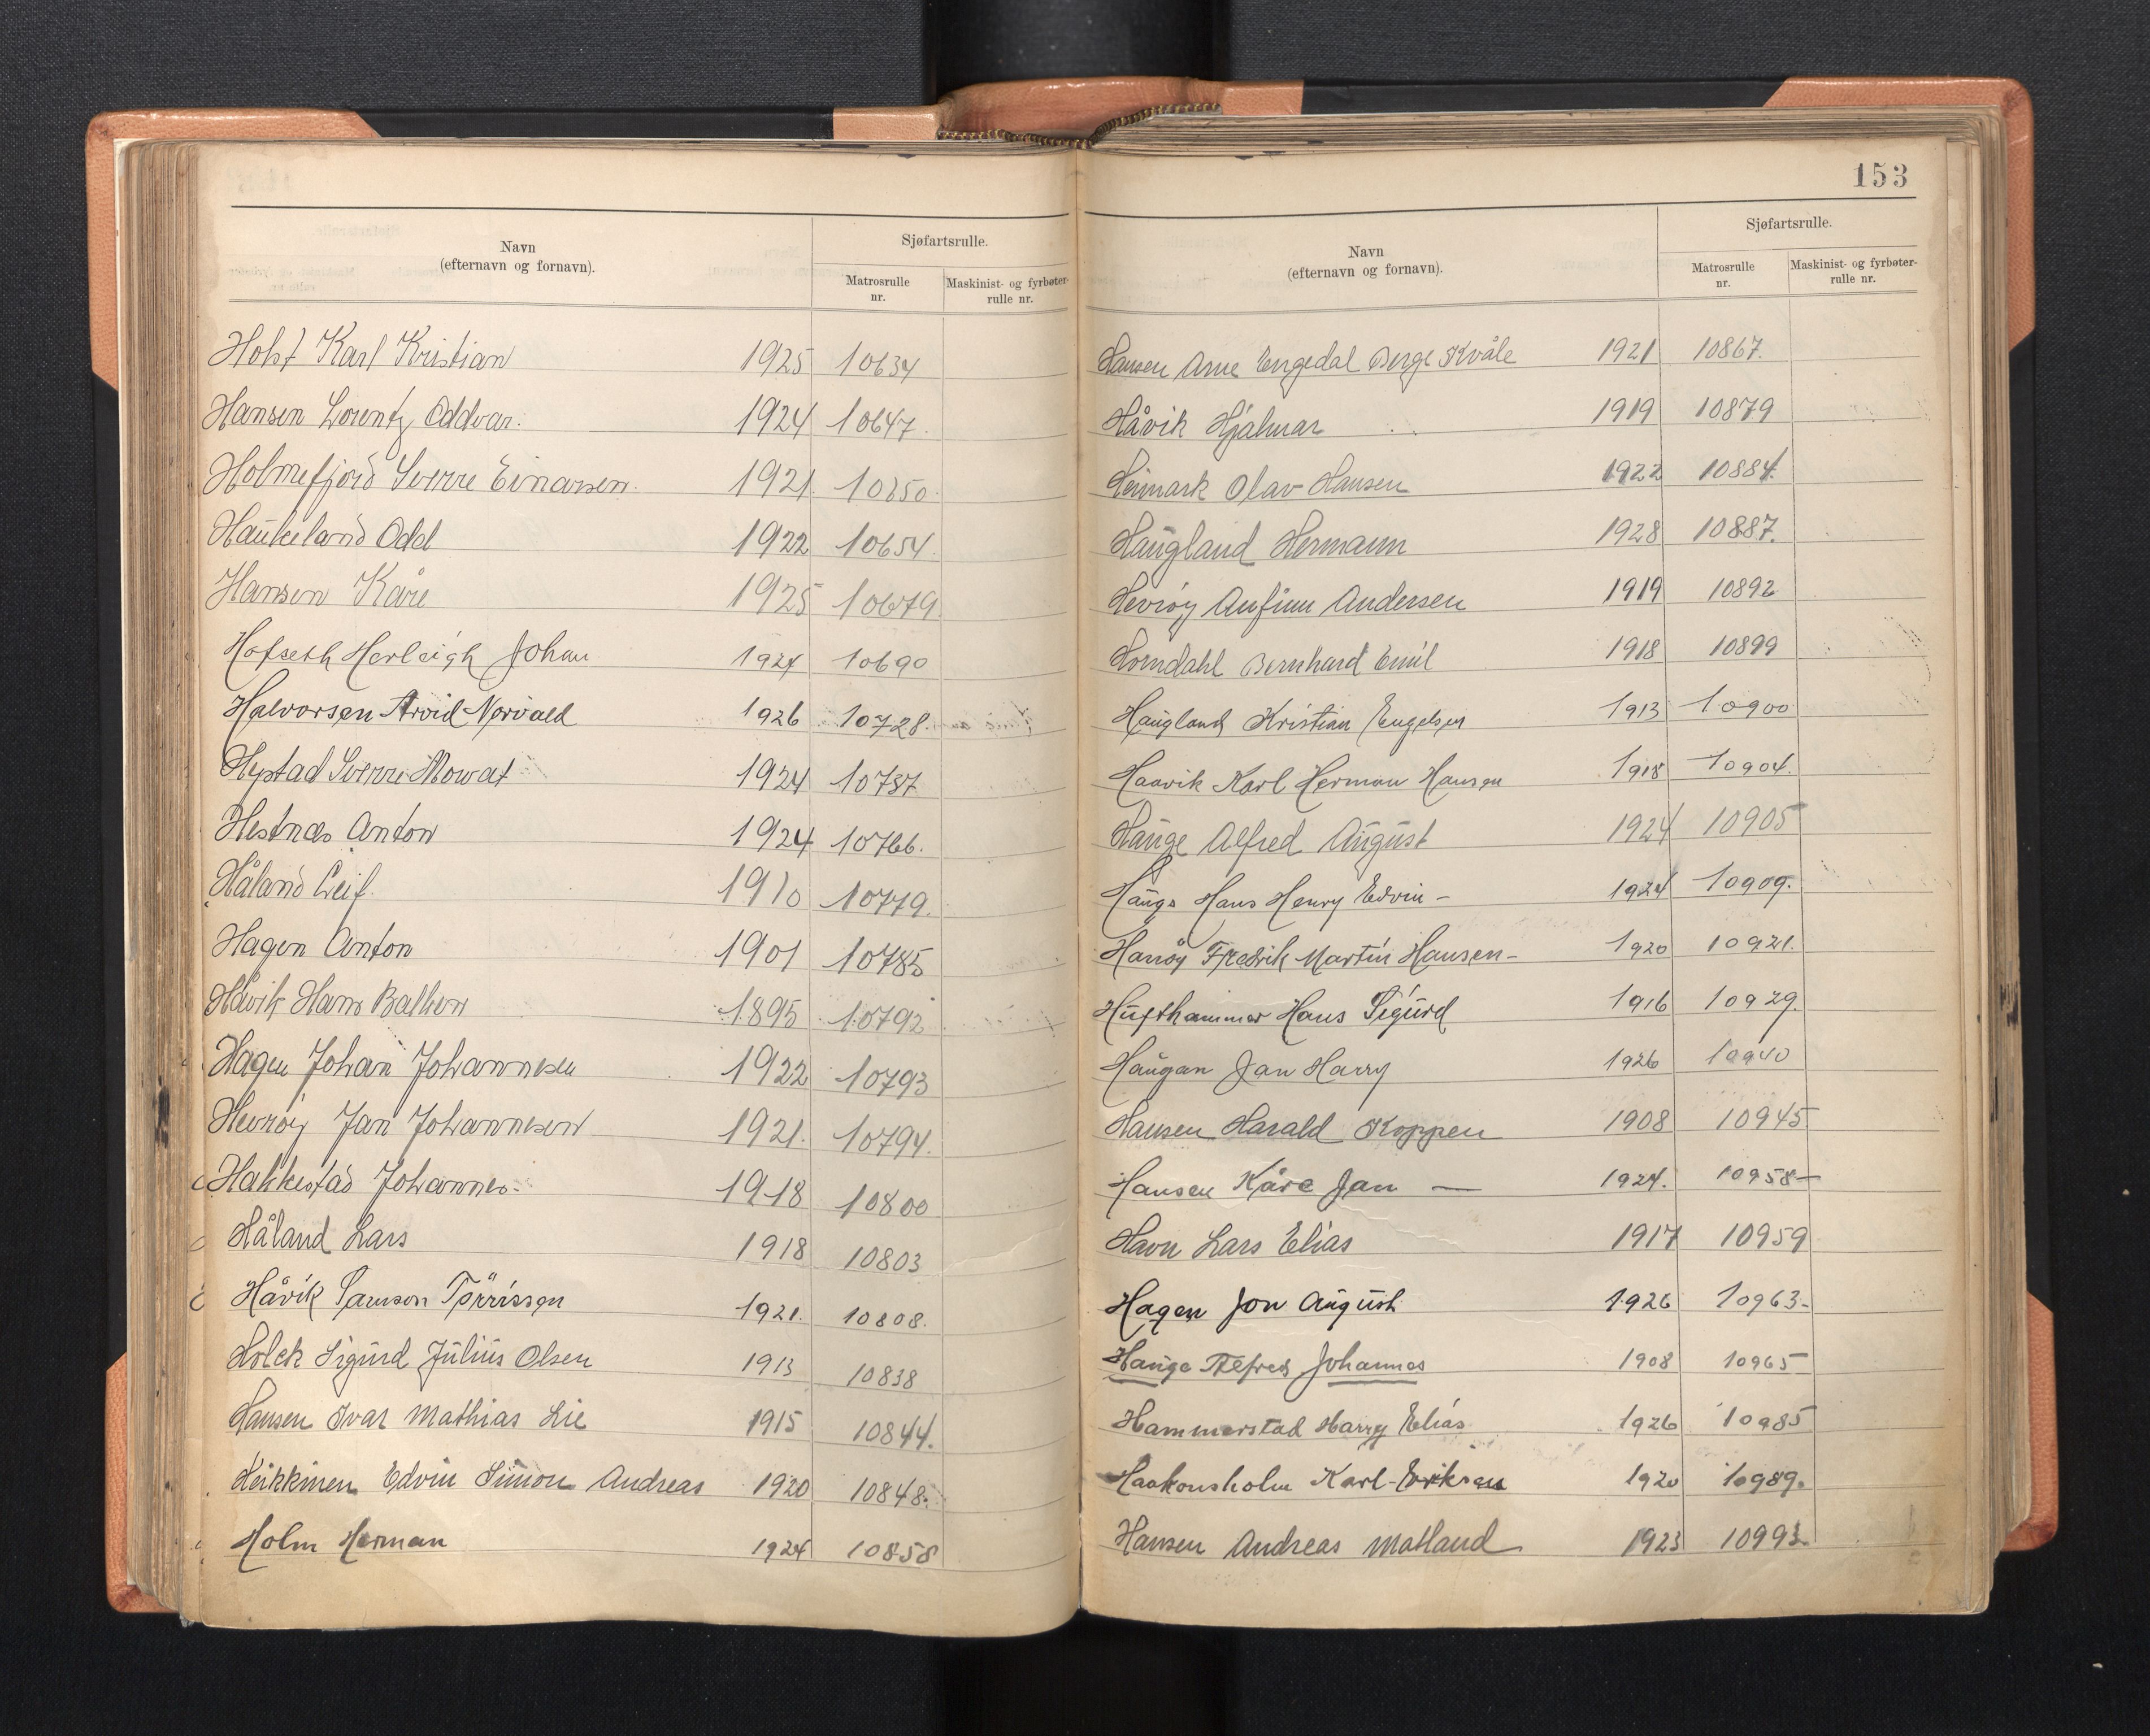 Navn
(efternavn og fornavn).
Sjøfartsrulle.
Matrosrulle
nr.
Maskinist- og fyrbøter-
rulle nr.
Holst Karl Kristian 1925 10634
Hansen Lorentz Oddvar. 1924 10647.
Holmefjord Sverre Einarsen. 1921. 10650.
Haukeland Odd 1922 10654.
Hansen Kåre 1925 10679.
Hofseth Herleigh Johan 1924 10690
Halvorsen Arvid Norvald 1926 10728.
Hystad Sverre Mowat 1924 10737
Hestnes Anton 1924 10766.
Håland Leif. 1910 10779.
Hagen Anton 1901 10785
Håvik Hans 1895 10792
Hagen Johan Johannesen 1922 10793
Hevrøy Jan Johannesen 1921. 10794.
Hakkestad Johannes. 1918 10800
Håland Lars 1918 10803
Håvik Samson Tørrissen 1921. 10808.
Holck Sigurd Julius Olsen 1913 10838
Hansen Ivar Mathias Lie 1915 10844.
Heikkinen Edvin Simon Andreas 1920 10848.
Holm Herman 1924 10858
153
Navn
(efternavn og fornavn).
Sjøfartsrulle.
Matrosrulle
nr.
Maskinist- og fyrbøter-
rulle nr.
Hansen Arne Engedal Berge Kvåle 1921 10867.
Håvik Hjalmar 1919 10879
Heimark Olav Hansen 1922 10884.
Haugland Hermann 1928 10887.
Hevrøy Anfinn Andersen 1919 10892
Horndahl Bernhard Emil 1918 10899
Haugland Kristian Engelsen 1913 10900
Haavik Karl Herman Hansen 1918 10904.
Hauge Alfred August 1924 10905
Hauge Hans Henry Edvin - 1924 10909.
Hanøy Fredrik Martin Hansen - 1920 10921.
Hufthammer Hans Sigurd 1916 10929.
Haugan Jan Harry 1926 10940
Hansen Harald Koppen 1908 10945
Hansen Kåre Jan — 1924. 10958-
Havn Lars Elias 1917 10959
Hagen Jon August 1926 10963-
Hauge Alfred Johannes 1908 10965
Hammerstad Harry Elias 1926 10985
Haakonsholm Karl Eriksen 1920 10989.
Hansen Andreas Matland 1923 10993.